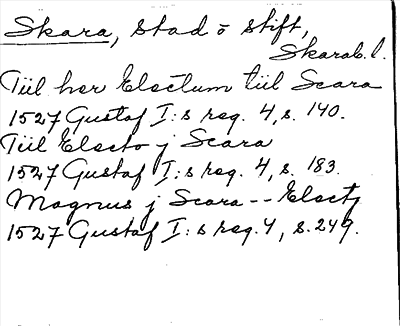 Skara, stad o stift,
Skarab. l.
Tiil her Electum tiil Scara
1527 Gustaf I:s reg. 4, s. 140.
Tiil Electo j Scara
1527 Gustaf I:s reg. 4, s. 183.
Magnus j Scara -- Electj
1527 Gustaf I:s reg. 4, s. 249.